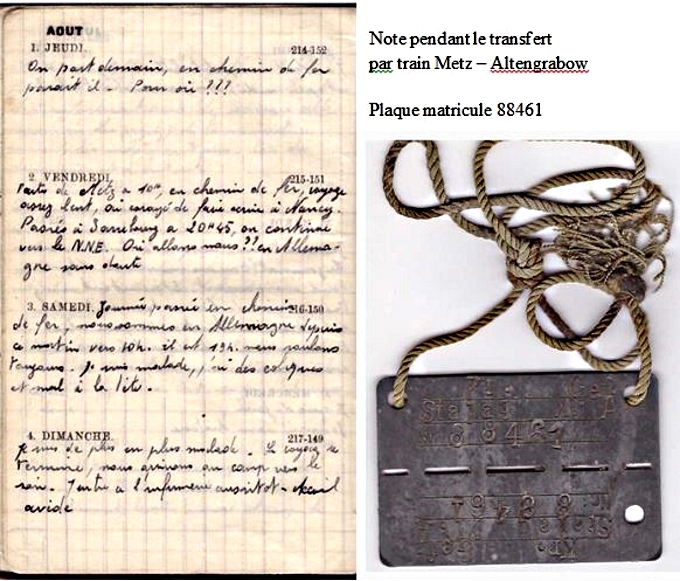 AOUT
1. JEUDI. 214-152
On part demain, en chemin de fer
parait il. Pour où ???
2. VENDREDI. 215-151
Partis de Metz a 10H, en chemin de fer, voyage
assez lent, ai essayé de faire écrire à Nancy.
Passés à Sarrebourg a 20H45, on continue
vers le N.N.E. Où allons nous ?? en Allema-
gne sans doute
3. SAMEDI. Journée passée en chemin 216-150
de fer, nous sommes en Allemagne depuis
ce matin vers 10h. il est 19h. nous roulons
toujours. Je suis malade, j'ai des coliques
et mal à la tête.
4. DIMANCHE. 217-149
Je suis de plus en plus malade. Le voyage se
termine, nous arrivons au camp vers le
soir. J'entre a l'infirmerie aussitot -
Note pendant le transfert
par train Metz – Altengrabow
Plaque matricule 88461
Stalag XI A
Nr. 88461
Nr. 88461
Stalag XI A